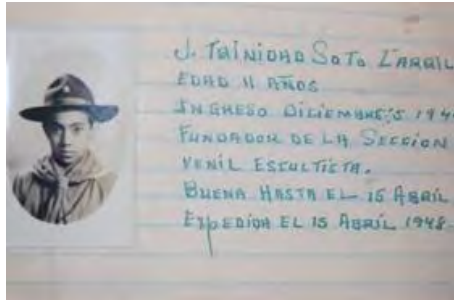 J. TRINIDAD SOTO LARRIL
EDAD 11 AÑOS
INGRESO DICIEMBRE 5 194
FUNDADOR DE LA SECCION
VENIL ESCULTISTA.
BUENA HASTA EL 15 ABRIL
EXPEDIDA EL 15 ABRIL 1948.